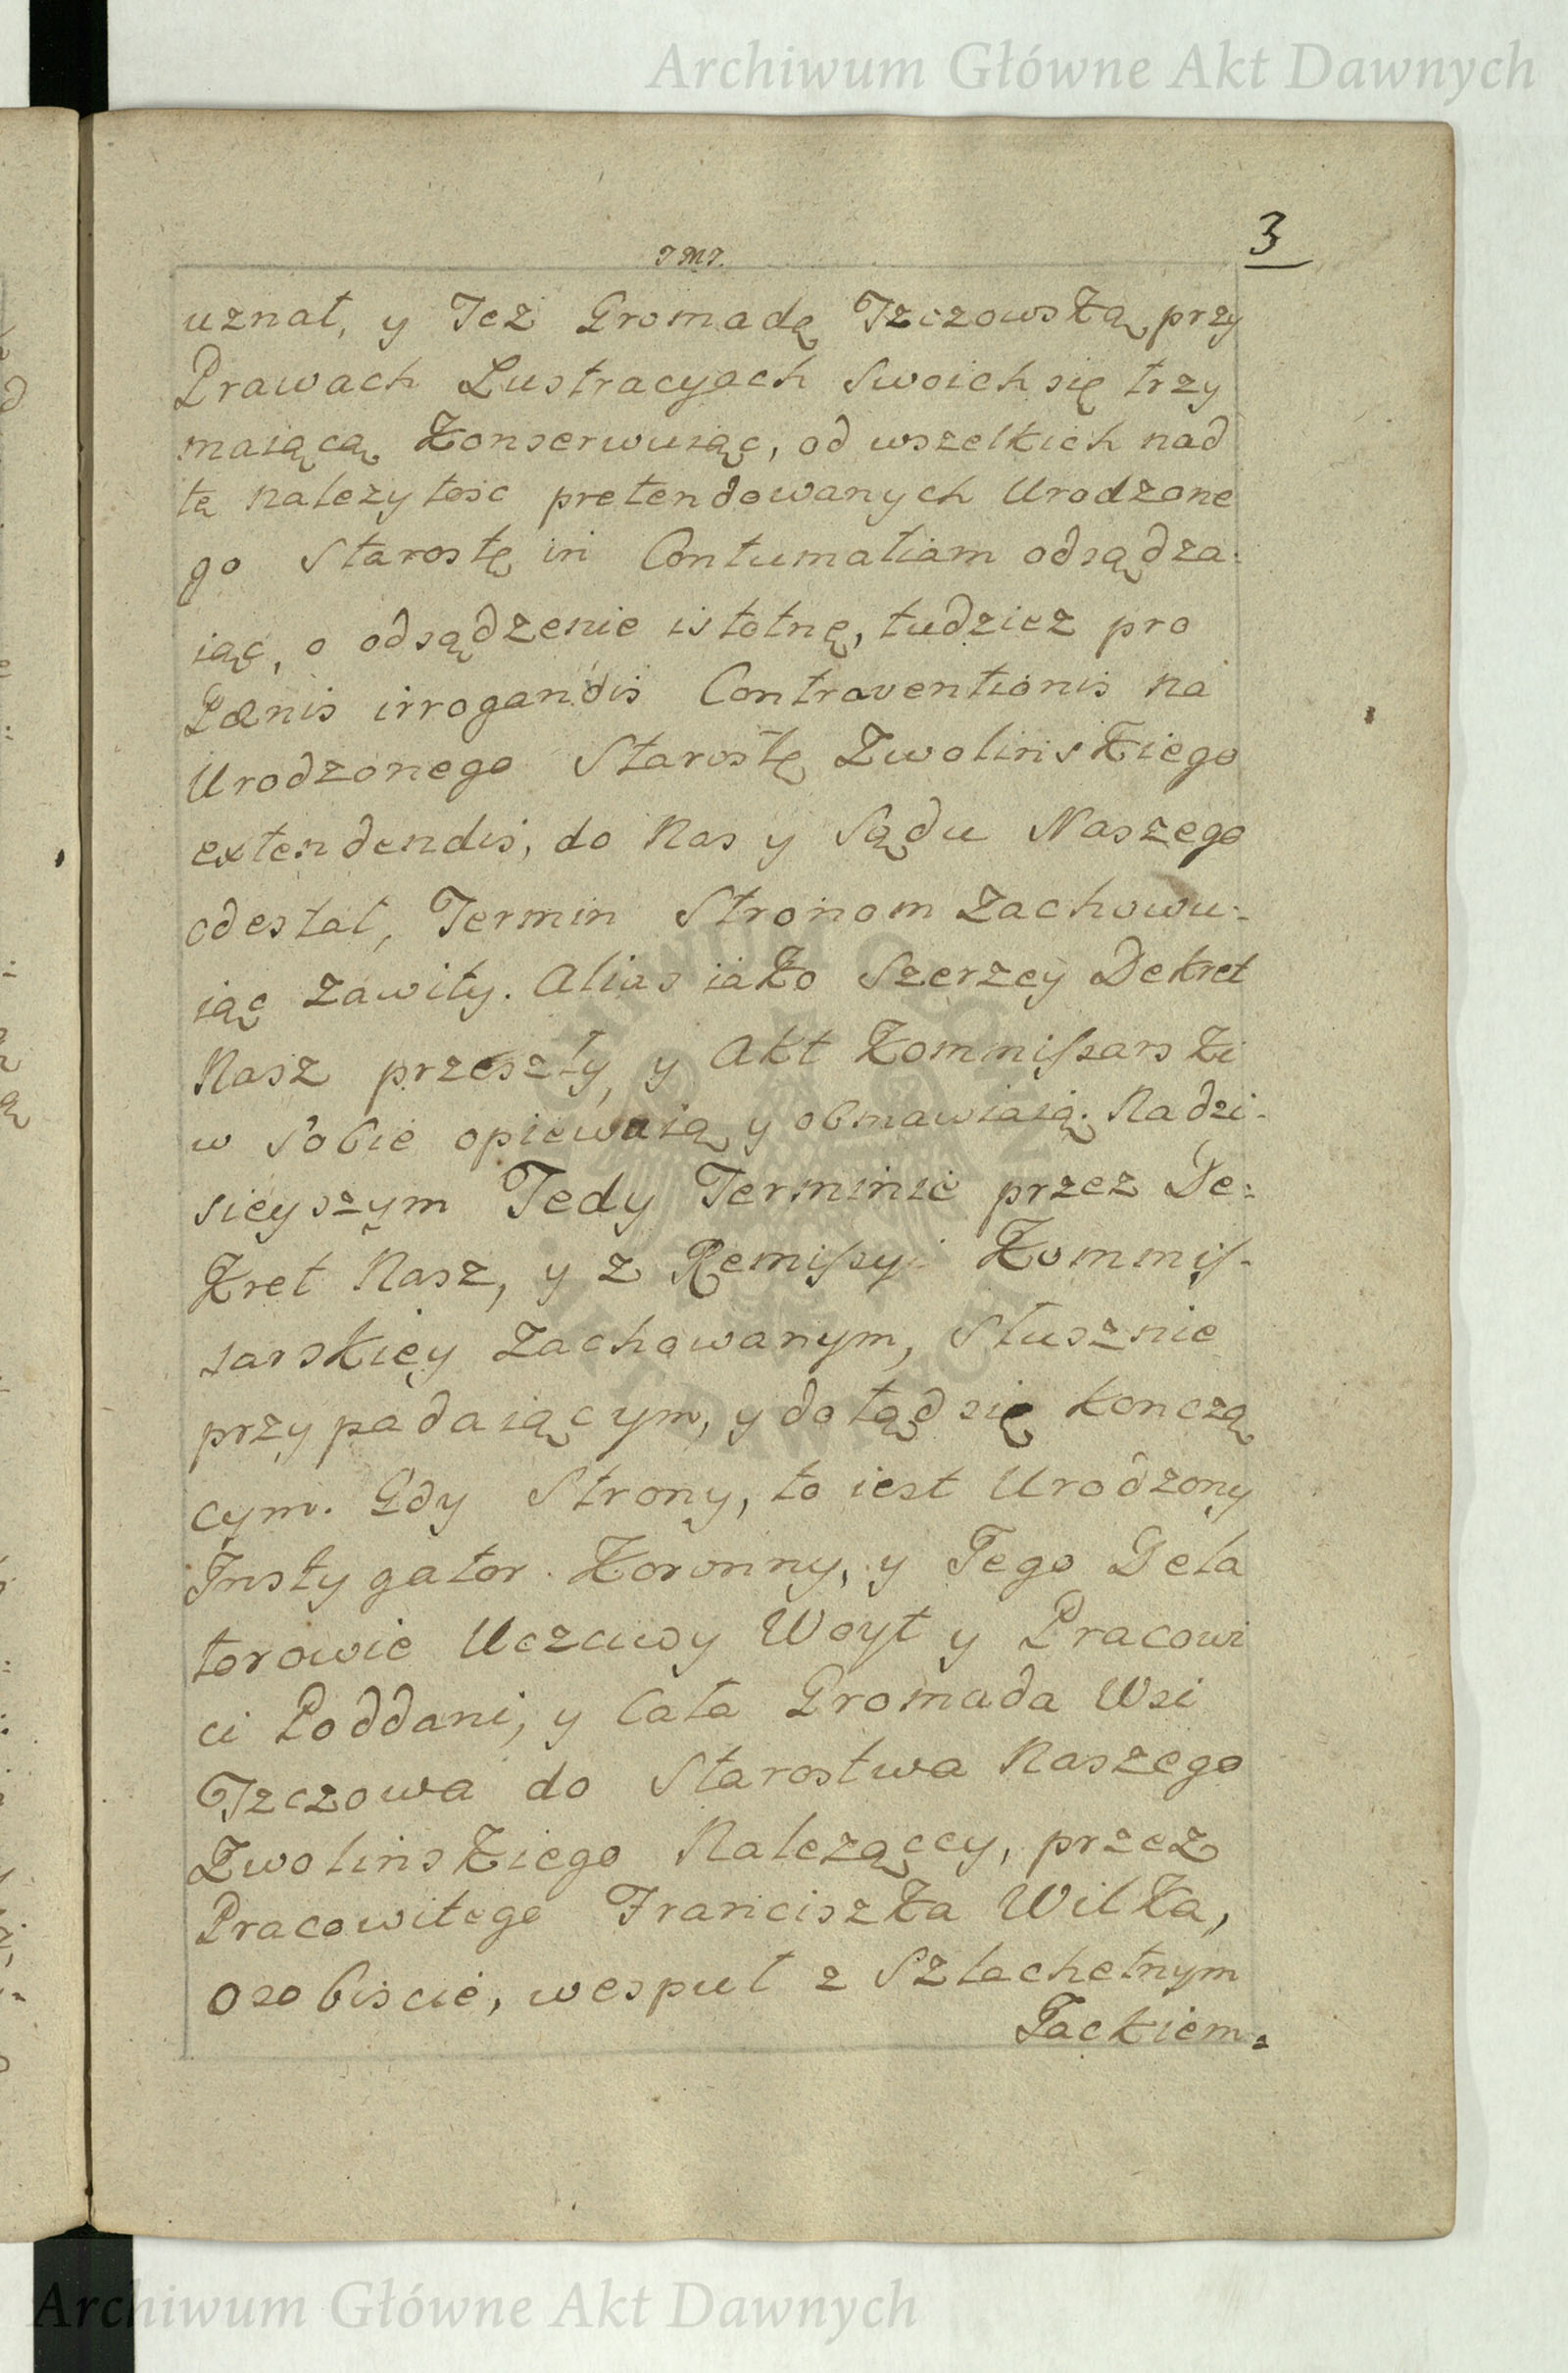 Archiwum Główne Akt Dawnych
3
JMJ.
uznał, y Też Gromadę Tzczowską przy
Prawach Lustracyach Swoich się trzy
maiącą Konserwuiąc, od wszelkich nad
tę należytosc pretendowanych Urodzone
go Starostę in Contumatiam odsądza:
iąc, o odsądzenie istotnę, tudziez pro
Pænis irrogandis Contraventionis na
Urodzonego Starostę Zwolinskiego
extendendis, do Nas y Sądu Naszego
odesłał, Termin Stronom Zachowu:
iąc zawity. Alias iako Szerzey Dekret
Nasz przeszły, y Akt Kommissarski
w Sobie opiewaią y obmawiaią. Na dzi-
sieyszym Tedy Terminie przez De:
Kret Nasz, y z Remissyi Kommis-
sarskiey Zachowanym, Słusznie
przypadaiącym, y dotąd się konczą
cym. Gdy Strony, to iest Urodzony
Instygator Koronny, y Tego Dela
torowie Uczciwy Woyt y Pracowi
ci Poddani, y Cała Gromada Wsi
Tzczowa do Starostwa Naszego
Zwolinskiego Nalezącey, przez
Pracowitego Franciszka Wilka,
osobiscie, wespuł z Szlachetnym
Tackiem:
Archiwum Główne Akt Dawnych